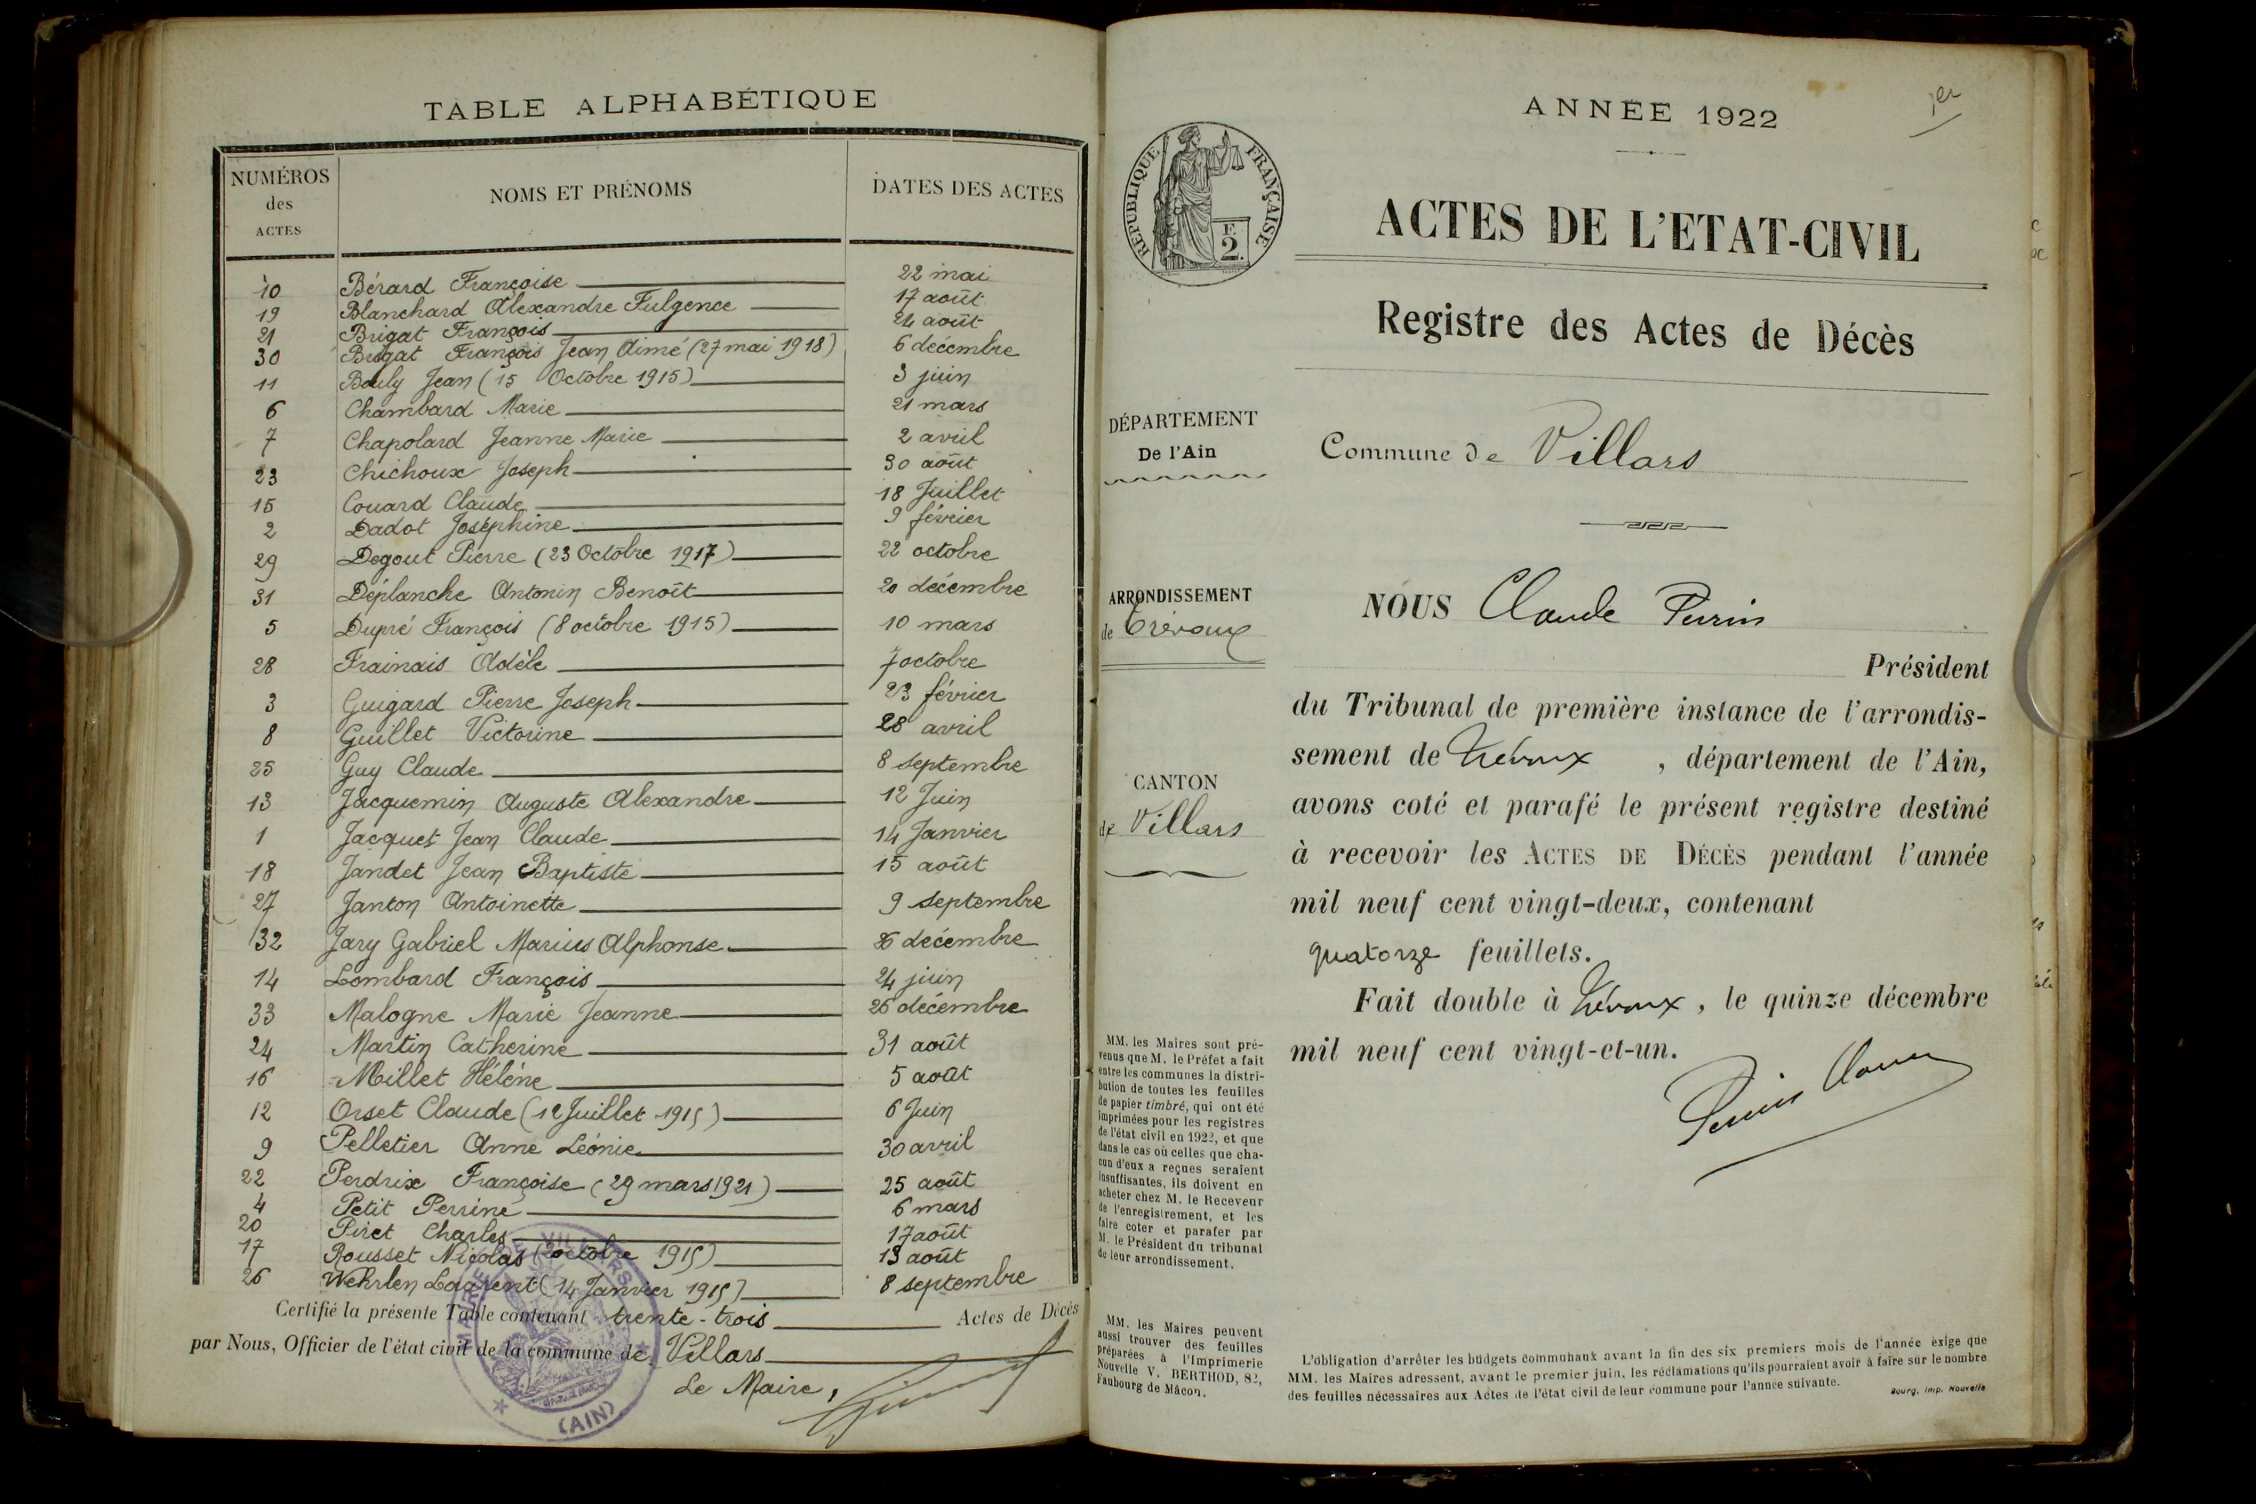 TABLE ALPHABÉTIQUE
NUMÉROS des ACTES NOMS ET PRÉNOMS DATES DES ACTES
10 Bérard Françoise 22 mai
19 Blanchard Alexandre Fulgence 17 août
21 Brigat François 24 août
30 Brigat François Jean Aimé (27 mai 1918) 6 décembre
11 Bouly Jean (15 Octobre 1915) 3 juin
6 Chambard Marie 21 mars
7 Chapolard Jeanne Marie 2 avril
23 Chichoux Joseph 30 août
15 Couard Claude 18 Juillet
2 Dadot Joséphine 9 février
29 Degout Pierre (23 Octobre 1917) 22 octobre
31 Déplanche Antonin Benoît 20 décembre
5 Dupré François (8 octobre 1915) 10 mars
28 Frainais Adèle 7 octobre
3 Guigard Pierre Joseph 23 février
8 Guillet Victorine 28 avril
25 Guy Claude 8 septembre
13 Jacquemin Auguste Alexandre 12 Juin
1 Jacquet Jean Claude 14 Janvier
18 Jandet Jean Baptiste 15 août
27 Janton Antoinette 9 septembre
32 Jary Gabriel Marius Alphonse 26 décembre
14 Lombard François 24 juin
33 Malogne Marie Jeanne 26 décembre
24 Martin Catherine 31 août
16 Millet Hélène 5 août
12 Orset Claude (12 Juillet 1915) 6 Juin
9 Pelletier Anne Léonie 30 avril
22 Perdrix Françoise (29 mars 1921) 25 août
4 Petit Perrine 6 mars
20 Piret Charles 17 août
17 Rousset Nicolas ( octobre 1915) 13 août
26 Wehrlen Laurent (14 Janvier 1915) 8 septembre
Certifié la présente Table contenant trente-trois Actes de Décès
par Nous, Officier de l'état civil de la commune de Villars
Le Maire,
MAIRIE DE VILLARS
(AIN)
1er
ANNÉE 1922
RÉPUBLIQUE FRANÇAISE
F.
2.
ACTES DE L'ETAT-CIVIL
Registre des Actes de Décès
DÉPARTEMENT
De l'Ain
Commune de Villars
ARRONDISSEMENT
de Trévoux
CANTON
de Villars
NOUS Claude Perrin
Président
du Tribunal de première instance de l'arrondis-
sement de Trévoux , département de l'Ain,
avons coté et parafé le présent registre destiné
à recevoir les ACTES DE DÉCÈS pendant l'année
mil neuf cent vingt-deux, contenant
quatorze feuillets.
Fait double à Trévoux, le quinze décembre
mil neuf cent vingt-et-un.
Perrin Claude
MM. les Maires sont pré-
venus que M. le Préfet a fait
entre les communes la distri-
bution de toutes les feuilles
de papier timbré, qui ont été
imprimées pour les registres
de l'état civil en 1922, et que
dans le cas où celles que cha-
cun d'eux a reçues seraient
insuffisantes, ils doivent en
acheter chez M. le Receveur
de l'enregistrement, et les
faire coter et parafer par
M. le Président du tribunal
de leur arrondissement.
MM. les Maires peuvent
aussi trouver des feuilles
préparées à l'Imprimerie
Nouvelle V. BERTHOD, 82,
Faubourg de Mâcon.
L'obligation d'arrêter les budgets communaux avant la fin des six premiers mois de l'année exige que
MM. les Maires adressent, avant le premier juin, les réclamations qu'ils pourraient avoir à faire sur le nombre
des feuilles nécessaires aux Actes de l'état civil de leur commune pour l'année suivante.
Bourg, Imp. Nouvelle